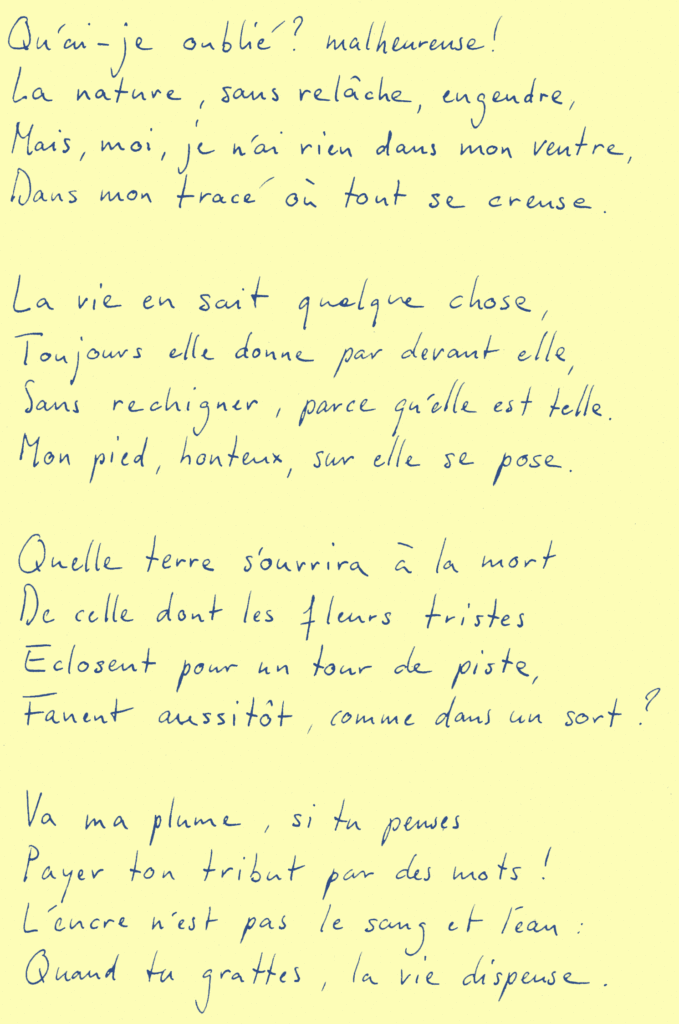 Qu'ai-je oublié? malheureuse!
La nature, sans relâche, engendre,
Mais, moi, je n'ai rien dans mon ventre,
Dans mon tracé où tout se creuse.

La vie en sait quelque chose,
Toujours elle donne par devant elle,
Sans rechigner, parce qu'elle est telle.
Mon pied, honteux, sur elle se pose.

Quelle terre s'ouvrira à la mort
De celle dont les fleurs tristes
Eclosent pour un tour de piste,
Fanent aussitôt, comme dans un sort?

Va ma plume, si tu penses
Payer ton tribut par des mots!
L'encre n'est pas le sang et l'eau:
Quand tu grattes, la vie dispense.